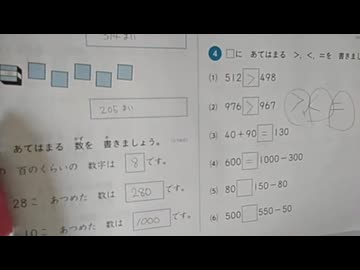 514まい
205まい
あてはまる 数を 書きましょう。
百のくらいの 数字は 8 です。
28こ あつめた 数は 280 です。
10こ あつめた 数は 1000 です。
4 □に あてはまる >, <, =を 書きまし
(1) 512 > 498
(2) 976 > 967
> < =
(3) 40+90 = 130
(4) 600 = 1000-300
(5) 80 □ 150-80
(6) 500 □ 550-50